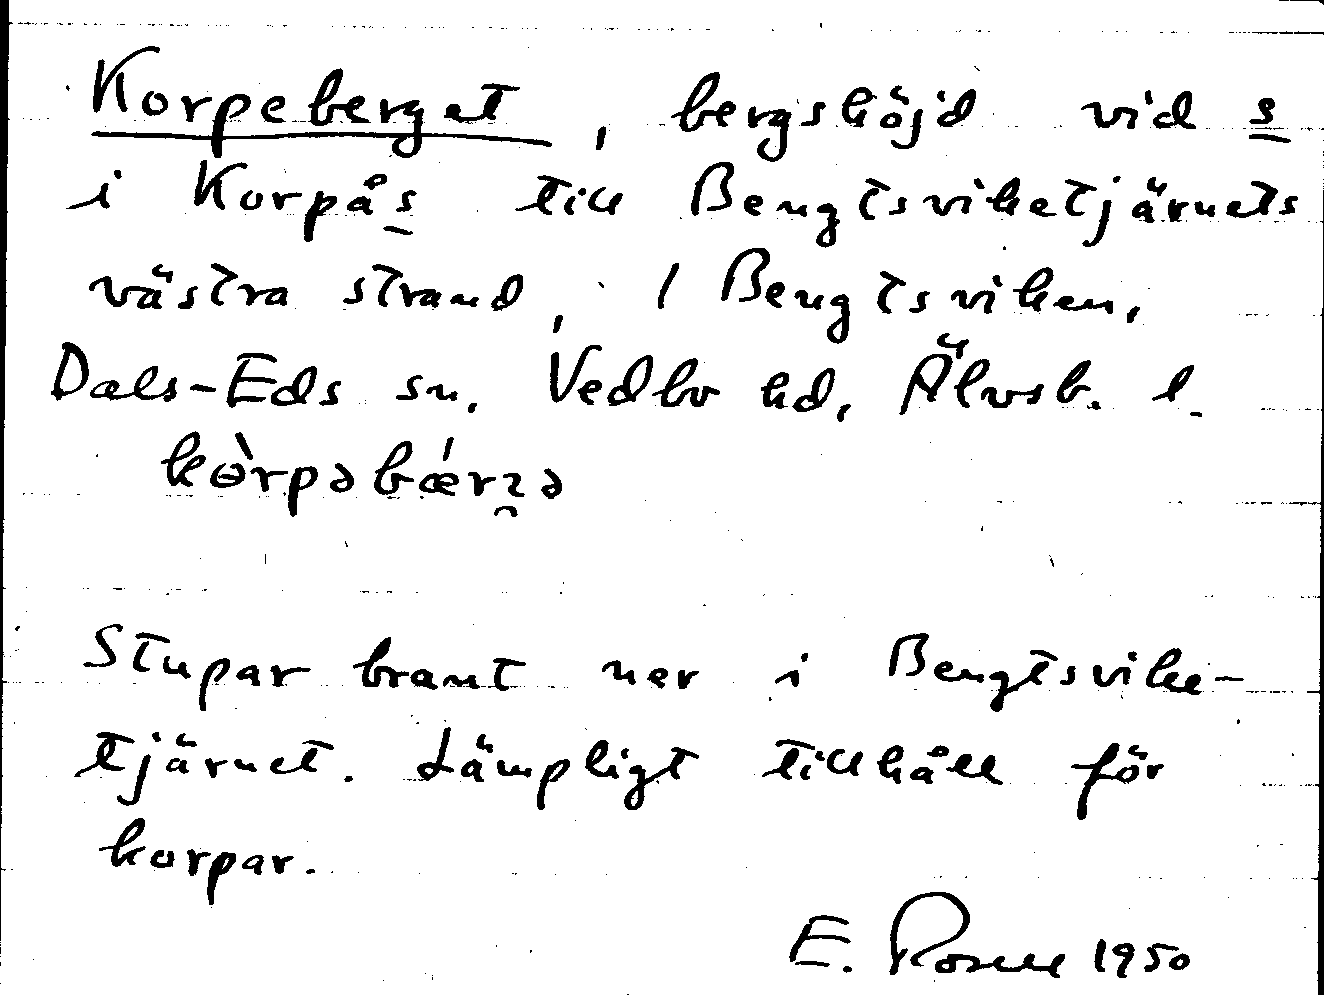 Korpeberget, bergshöjd vid s
i Korpås till Bengtsviketjärnets
västra strand, / Bengtsviken,
Dals-Eds sn, Vedbo hd, Älvsb. l.
Stupar brant ner i Bengtsvike-
tjärnet. Lämpligt tillhåll för
korpar.
E. 1950